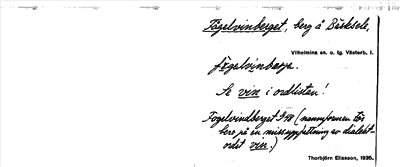 Fågelvinberget, berg å Bäksele,
Vilhelmina sn. o. tg. Västerb. l.
Se vin i ordlistan!
Fogelvindberget (namnformen tör
bero på en missuppfattning av dialekt-
ordet vin.)
Thorbjörn Eliasson, 1935.